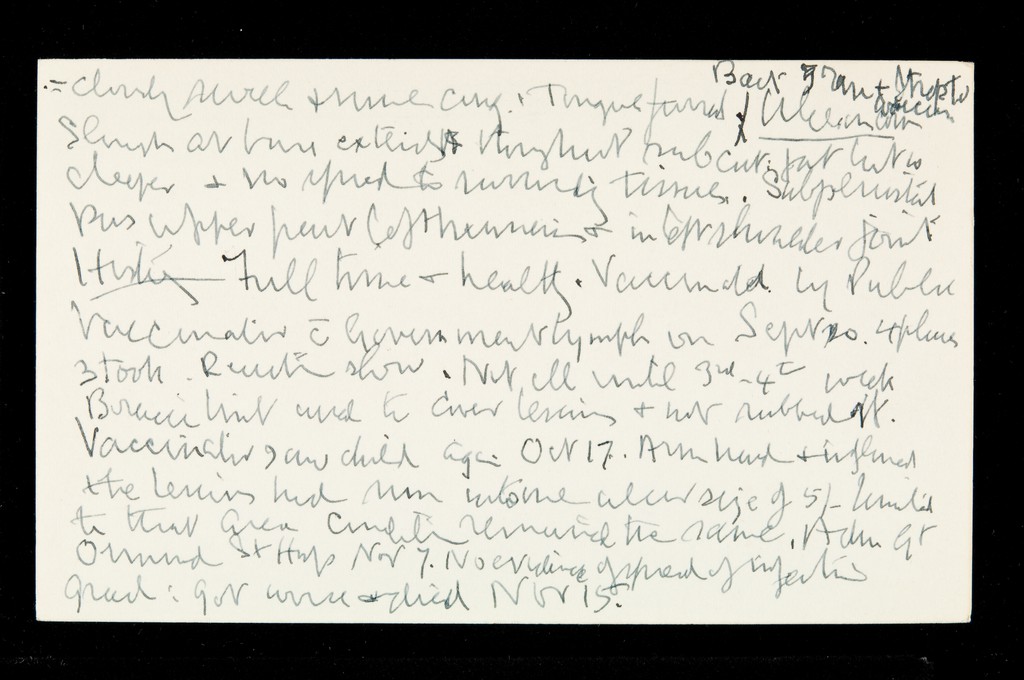 Back of arm + Strepto
= cloudy swell + some cong. Tongue furred / Ulcer in
Slough at base extends throughout subcut. fat but no
deeper + no spread to surrounding tissues. Subperiosteal
Pus upper part left humerus + in left shoulder joint
History Full time + healthy. Vaccinated by Public
Vaccinator c̄ Government lymph on Sept 20. 4 places
3 took. Reaction slow. Not ill until 3rd - 4th week
Boracic lint used to cover lesions + not rubbed off.
Vaccinator saw child again Oct 17. Arm hard + inflamed
+ the lesions had run into one ulcer size of 5/- limited
to that area condition remained the same. Adm Gt
Ormond St Hosp Nov 7. No evidence of spread of infection
Grad: got worse + died Nov 15.